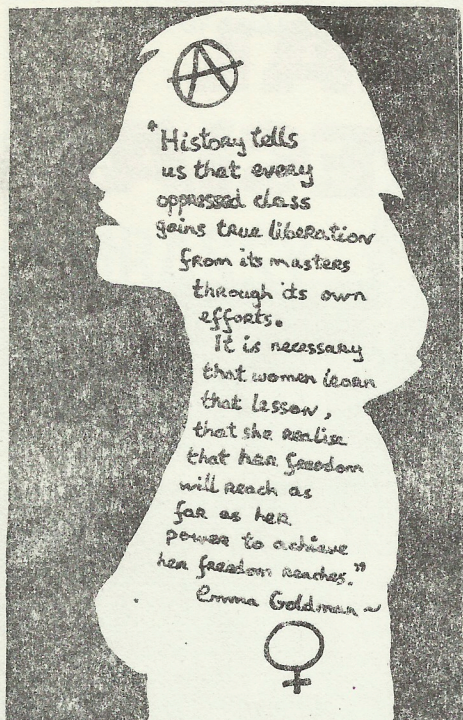 "History tells
us that every
oppressed class
gains true liberation
from its masters
through its own
efforts.
It is necessary
that women learn
that lesson,
that she realise
that her freedom
will reach as
far as her
power to achieve
her freedom reaches."
Emma Goldman ~